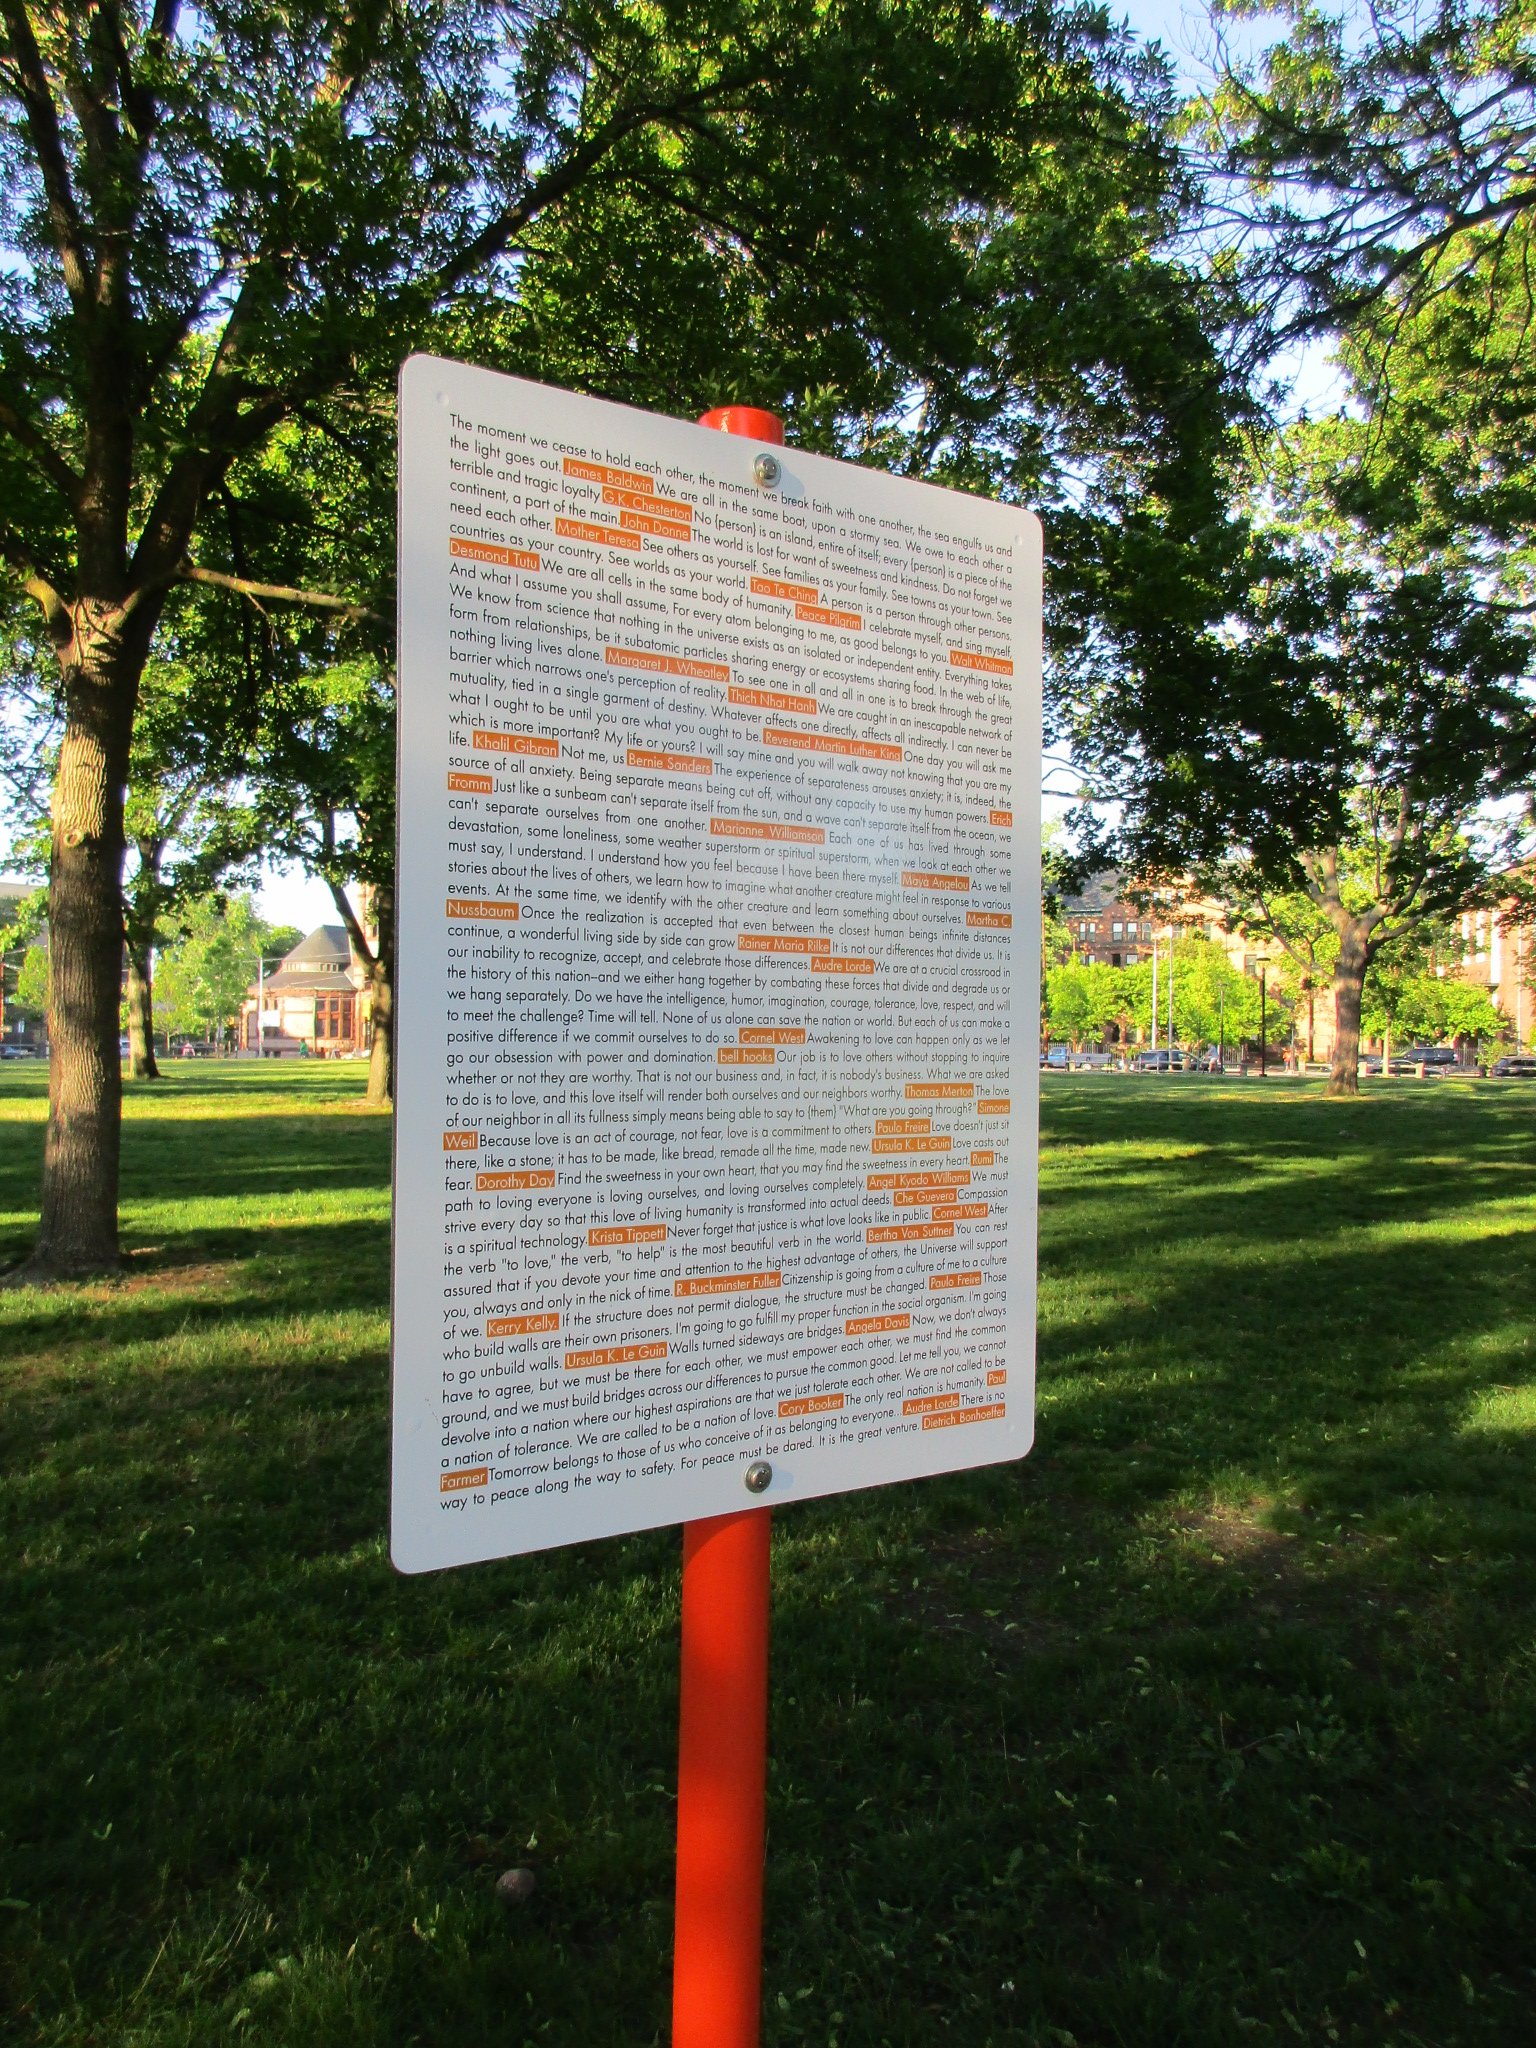 The moment we cease to hold each other, the moment we break faith with one another, the sea engulfs us and
the light goes out. James Baldwin We are all in the same boat, upon a stormy sea. We owe to each other a
terrible and tragic loyalty G.K. Chesterton No (person) is an island, entire of itself; every (person) is a piece of the
continent, a part of the main. John Donne The world is lost for want of sweetness and kindness. Do not forget we
need each other. Mother Teresa See others as yourself. See families as your family. See towns as your town. See
countries as your country. See worlds as your world. Tao Te Ching A person is a person through other persons.
Desmond Tutu We are all cells in the same body of humanity. Peace Pilgrim I celebrate myself, and sing myself,
And what I assume you shall assume, For every atom belonging to me, as good belongs to you. Walt Whitman
We know from science that nothing in the universe exists as an isolated or independent entity. Everything takes
form from relationships, be it subatomic particles sharing energy or ecosystems sharing food. In the web of life,
nothing living lives alone. Margaret J. Wheatley To see one in all and all in one is to break through the great
barrier which narrows one's perception of reality. Thich Nhat Hanh We are caught in an inescapable network of
mutuality, tied in a single garment of destiny. Whatever affects one directly, affects all indirectly. I can never be
what I ought to be until you are what you ought to be. Reverend Martin Luther King One day you will ask me
which is more important? My life or yours? I will say mine and you will walk away not knowing that you are my
life. Khalil Gibran Not me, us Bernie Sanders The experience of separateness arouses anxiety; it is, indeed, the
source of all anxiety. Being separate means being cut off, without any capacity to use my human powers. Erich
Fromm Just like a sunbeam can't separate itself from the sun, and a wave can't separate itself from the ocean, we
can't separate ourselves from one another. Marianne Williamson Each one of us has lived through some
devastation, some loneliness, some weather superstorm or spiritual superstorm, when we look at each other we
must say, I understand. I understand how you feel because I have been there myself. Maya Angelou As we tell
stories about the lives of others, we learn how to imagine what another creature might feel in response to various
events. At the same time, we identify with the other creature and learn something about ourselves. Martha C.
Nussbaum Once the realization is accepted that even between the closest human beings infinite distances
continue, a wonderful living side by side can grow Rainer Maria Rilke It is not our differences that divide us. It is
our inability to recognize, accept, and celebrate those differences. Audre Lorde We are at a crucial crossroad in
the history of this nation–and we either hang together by combating these forces that divide and degrade us or
we hang separately. Do we have the intelligence, humor, imagination, courage, tolerance, love, respect, and will
to meet the challenge? Time will tell. None of us alone can save the nation or world. But each of us can make a
positive difference if we commit ourselves to do so. Cornel West Awakening to love can happen only as we let
go our obsession with power and domination. bell hooks Our job is to love others without stopping to inquire
whether or not they are worthy. That is not our business and, in fact, it is nobody's business. What we are asked
to do is to love, and this love itself will render both ourselves and our neighbors worthy. Thomas Merton The love
of our neighbor in all its fullness simply means being able to say to (them) "What are you going through?" Simone
Weil Because love is an act of courage, not fear, love is a commitment to others. Paulo Freire Love doesn't just sit
there, like a stone; it has to be made, like bread, remade all the time, made new. Ursula K. Le Guin Love casts out
fear. Dorothy Day Find the sweetness in your own heart, that you may find the sweetness in every heart. Rumi The
path to loving everyone is loving ourselves, and loving ourselves completely. Angel Kyodo Williams We must
strive every day so that this love of living humanity is transformed into actual deeds. Che Guevera Compassion
is a spiritual technology. Krista Tippett Never forget that justice is what love looks like in public. Cornel West After
the verb "to love," the verb, "to help" is the most beautiful verb in the world. Bertha Von Suttner You can rest
assured that if you devote your time and attention to the highest advantage of others, the Universe will support
you, always and only in the nick of time. R. Buckminster Fuller Citizenship is going from a culture of me to a culture
of we. Kerry Kelly. If the structure does not permit dialogue, the structure must be changed. Paulo Freire Those
who build walls are their own prisoners. I'm going to go fulfill my proper function in the social organism. I'm going
to go unbuild walls. Ursula K. Le Guin Walls turned sideways are bridges. Angela Davis Now, we don't always
have to agree, but we must be there for each other, we must empower each other, we must find the common
ground, and we must build bridges across our differences to pursue the common good. Let me tell you, we cannot
devolve into a nation where our highest aspirations are that we just tolerate each other. We are not called to be
a nation of tolerance. We are called to be a nation of love. Cory Booker The only real nation is humanity. Paul
Farmer Tomorrow belongs to those of us who conceive of it as belonging to everyone... Audre Lorde There is no
way to peace along the way to safety. For peace must be dared. It is the great venture. Dietrich Bonhoeffer